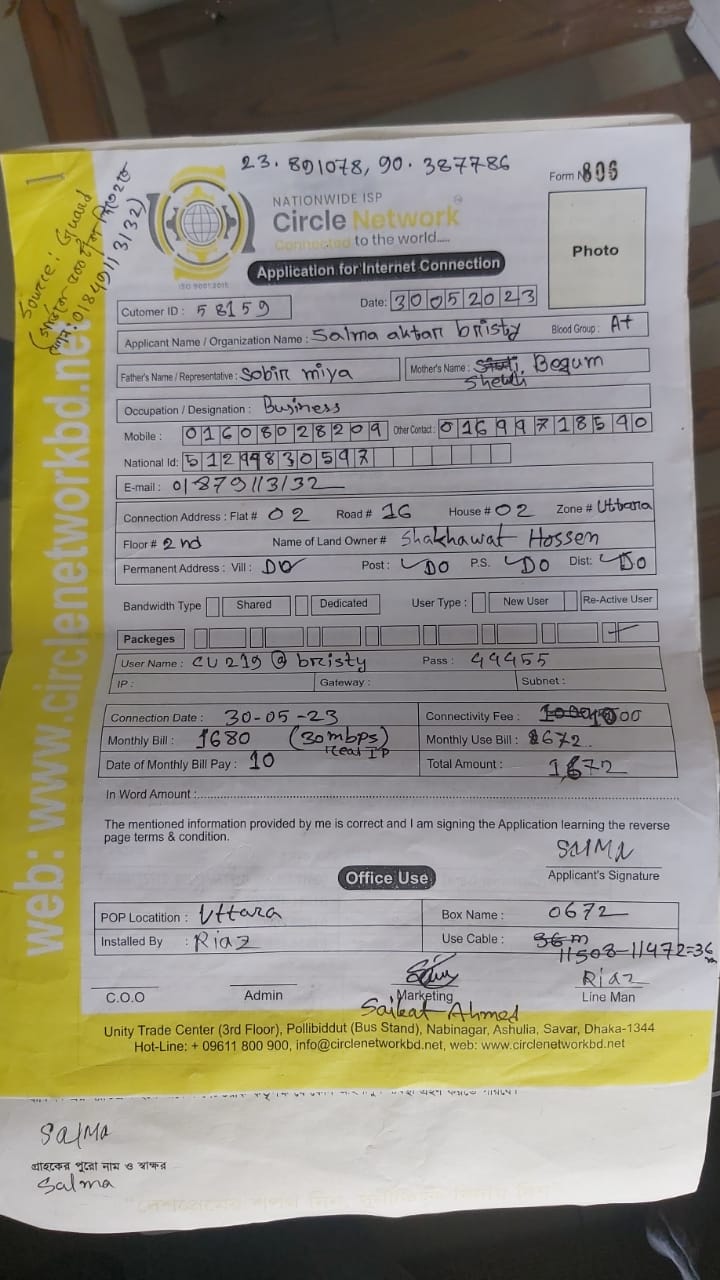 23.891078, 90.387786
Source: Guard
01849113132)
Form No 806
NATIONWIDE ISP
Circle Network
Connected to the world.....
ISO 9001:2015
Photo
Application for Internet Connection
Cutomer ID : 58159
Date: 30052023
Applicant Name / Organization Name : Salma aktar bristy Blood Group : A+
Father's Name / Representative : Sobir miya Mother's Name : Begum
Occupation / Designation : Business
Mobile : 01608028209 Other Contact : 01699718590
National Id: 5129983059
E-mail : 01879113132
Connection Address : Flat # 02 Road # 16 House # 02 Zone # Uttara
Floor # 2nd Name of Land Owner # Shakhawat Hossen
Permanent Address : Vill : DO Post : DO P.S. DO Dist: DO
Bandwidth Type Shared Dedicated User Type : New User Re-Active User
Packeges
User Name : CU219@bristy Pass : 44455
IP : Gateway : Subnet :
Connection Date : 30-05-23 Connectivity Fee :
Monthly Bill : 1680 (30mbps) Monthly Use Bill : 672
Real IP
Date of Monthly Bill Pay : 10 Total Amount : 1672
In Word Amount :
The mentioned information provided by me is correct and I am signing the Application learning the reverse
page terms & condition.
SalMa
Applicant's Signature
Office Use
POP Locatition : Uttara Box Name : 0672
Installed By : Riaz Use Cable : 36m
11508-11472=36m
C.O.O Admin Marketing Riaz
Line Man
Saikat Ahmed
Unity Trade Center (3rd Floor), Pollibiddut (Bus Stand), Nabinagar, Ashulia, Savar, Dhaka-1344
Hot-Line: + 09611 800 900, info@circlenetworkbd.net, web: www.circlenetworkbd.net
web: www.circlenetworkbd.net
SalMa
গ্রাহকের পুরো নাম ও স্বাক্ষর
Salma